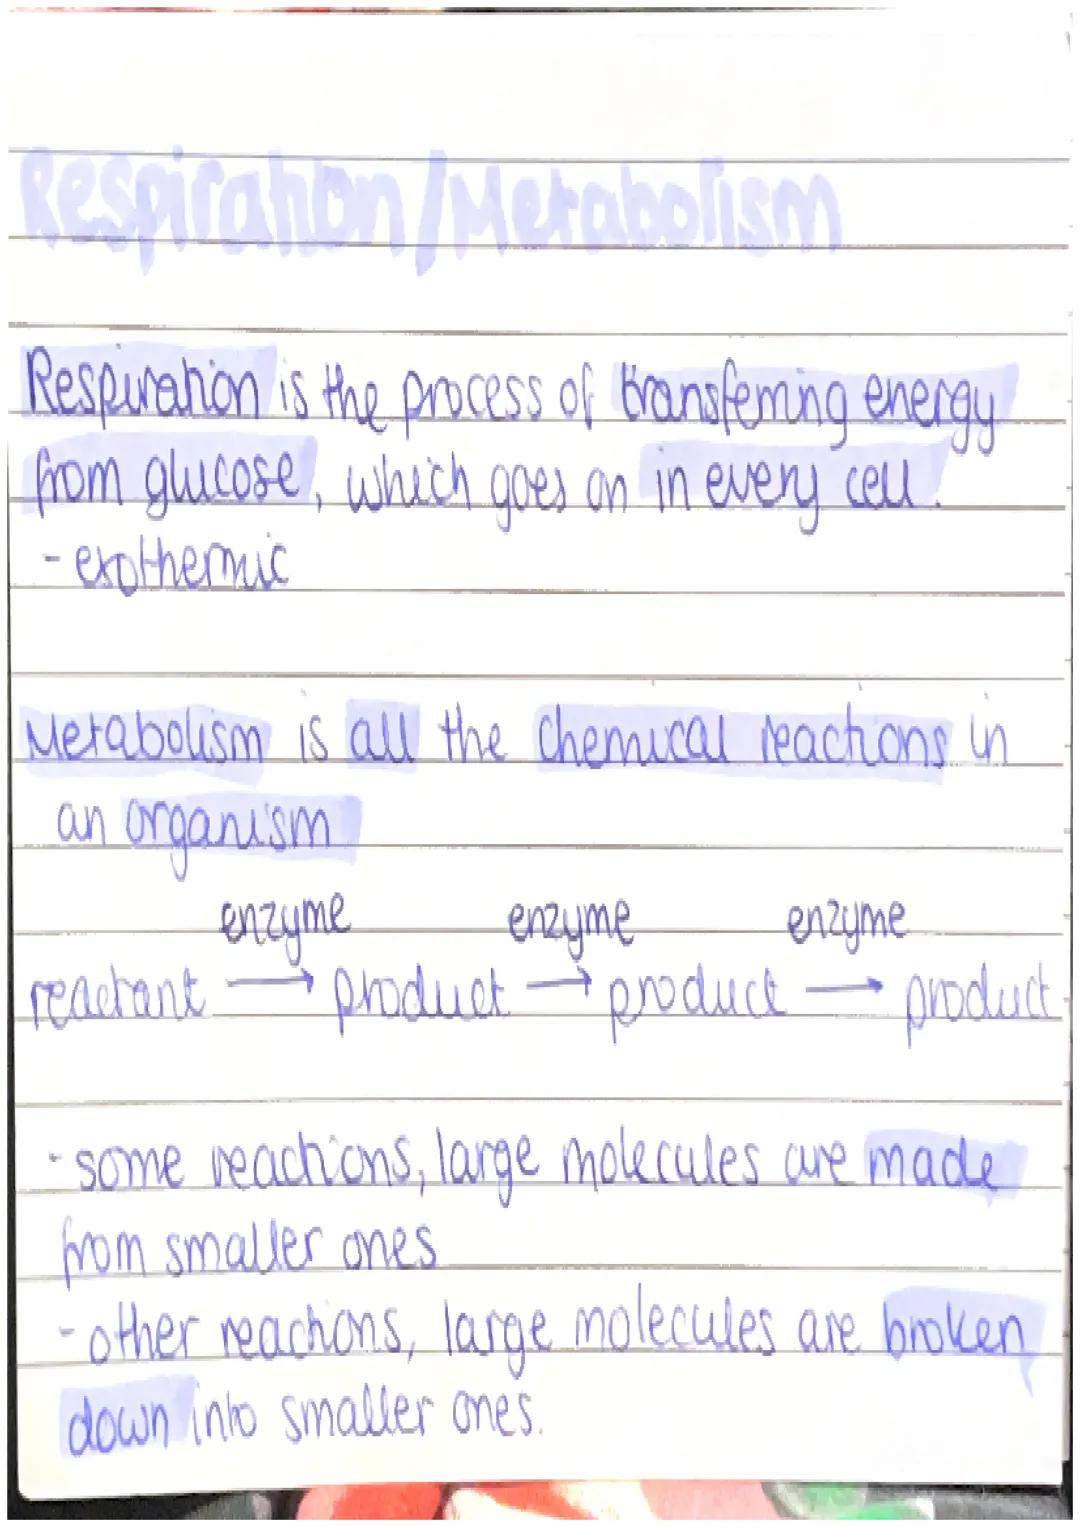 Respiration/Metabolism
Respiration is the process of transferring energy
from glucose, which goes on in every cell.
- exothermic
Metabolism is all the chemical reactions in
an organism
enzyme enzyme enzyme
reactant → product → product → product
- some reactions, large molecules are made
from smaller ones
- other reactions, large molecules are broken
down into smaller ones.